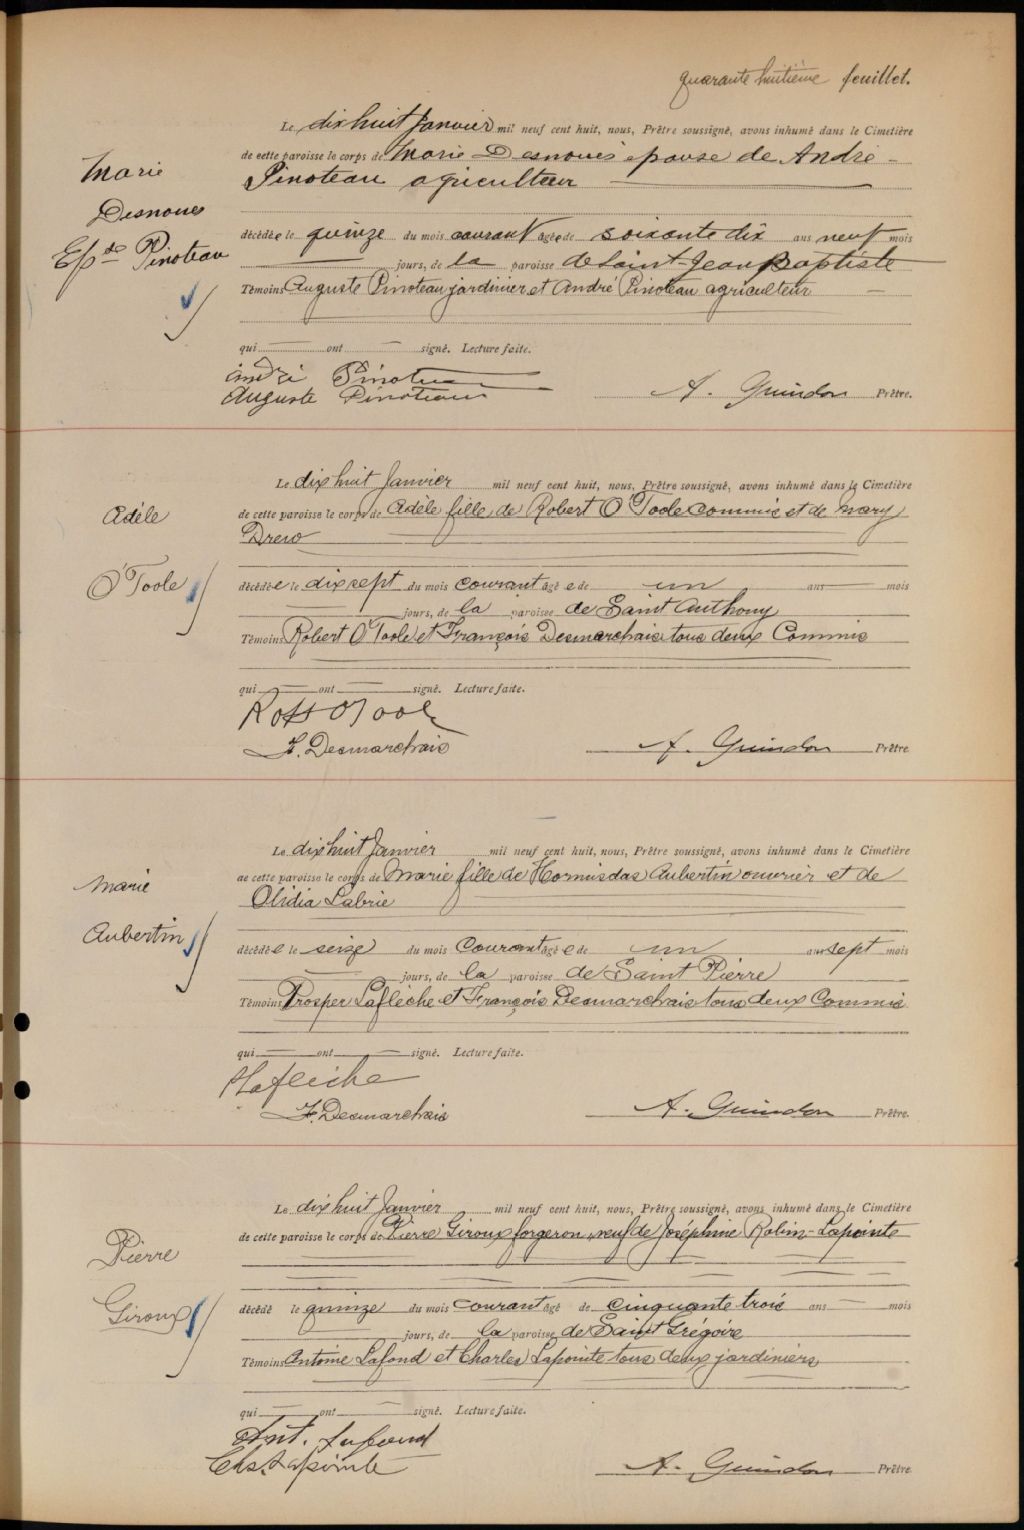 quarante huitième feuillet.
Le dix huit Janvier mil neuf cent huit, nous, Prêtre soussigné, avons inhumé dans le Cimetière
de cette paroisse le corps de Marie Desnoues épouse de André
Pinoteau agriculteur
Marie
Desnoues
Ép se Pinoteau
décédée le quinze du mois courant âgée de soixante dix ans neuf mois
jours, de la paroisse de Saint-Jean Baptiste
Témoins Auguste Pinoteau jardinier et André Pinoteau agriculteur
qui ont signé. Lecture faite.
André Pinoteau
Auguste Pinoteau
A. Guindon Prêtre.
Le dix huit Janvier mil neuf cent huit, nous, Prêtre soussigné, avons inhumé dans le Cimetière
de cette paroisse le corps de Adèle fille de Robert O'Toole commis et de Mary
Drew
Adèle
O'Toole
décédée le dix sept du mois courant âgée de un ans mois
jours, de la paroisse de Saint Anthony
Témoins Robert O'Toole et François Desmarchais tous deux Commis
qui ont signé. Lecture faite.
Robt O'Toole
F. Desmarchais
A. Guindon Prêtre
Le dix huit Janvier mil neuf cent huit, nous, Prêtre soussigné, avons inhumé dans le Cimetière
de cette paroisse le corps de Marie fille de Hormisdas Aubertin ouvrier et de
Olidia Labrie
Marie
Aubertin
décédée le seize du mois courant âgée de un ans sept mois
jours, de la paroisse de Saint Pierre
Témoins Prosper Laflèche et François Desmarchais tous deux Commis
qui ont signé. Lecture faite.
P Laflèche
F. Desmarchais
A. Guindon Prêtre.
Le dix huit Janvier mil neuf cent huit, nous, Prêtre soussigné, avons inhumé dans le Cimetière
de cette paroisse le corps de Pierre Giroux forgeron, veuf de Joséphine Robin-Lapointe
Pierre
Giroux
décédé le quinze du mois courant âgé de cinquante trois ans mois
jours, de la paroisse de Saint Grégoire
Témoins Antoine Lafond et Charles Lapointe tous deux jardiniers
qui ont signé. Lecture faite.
Ant. Lafond
Chs. Lapointe
A. Guindon Prêtre